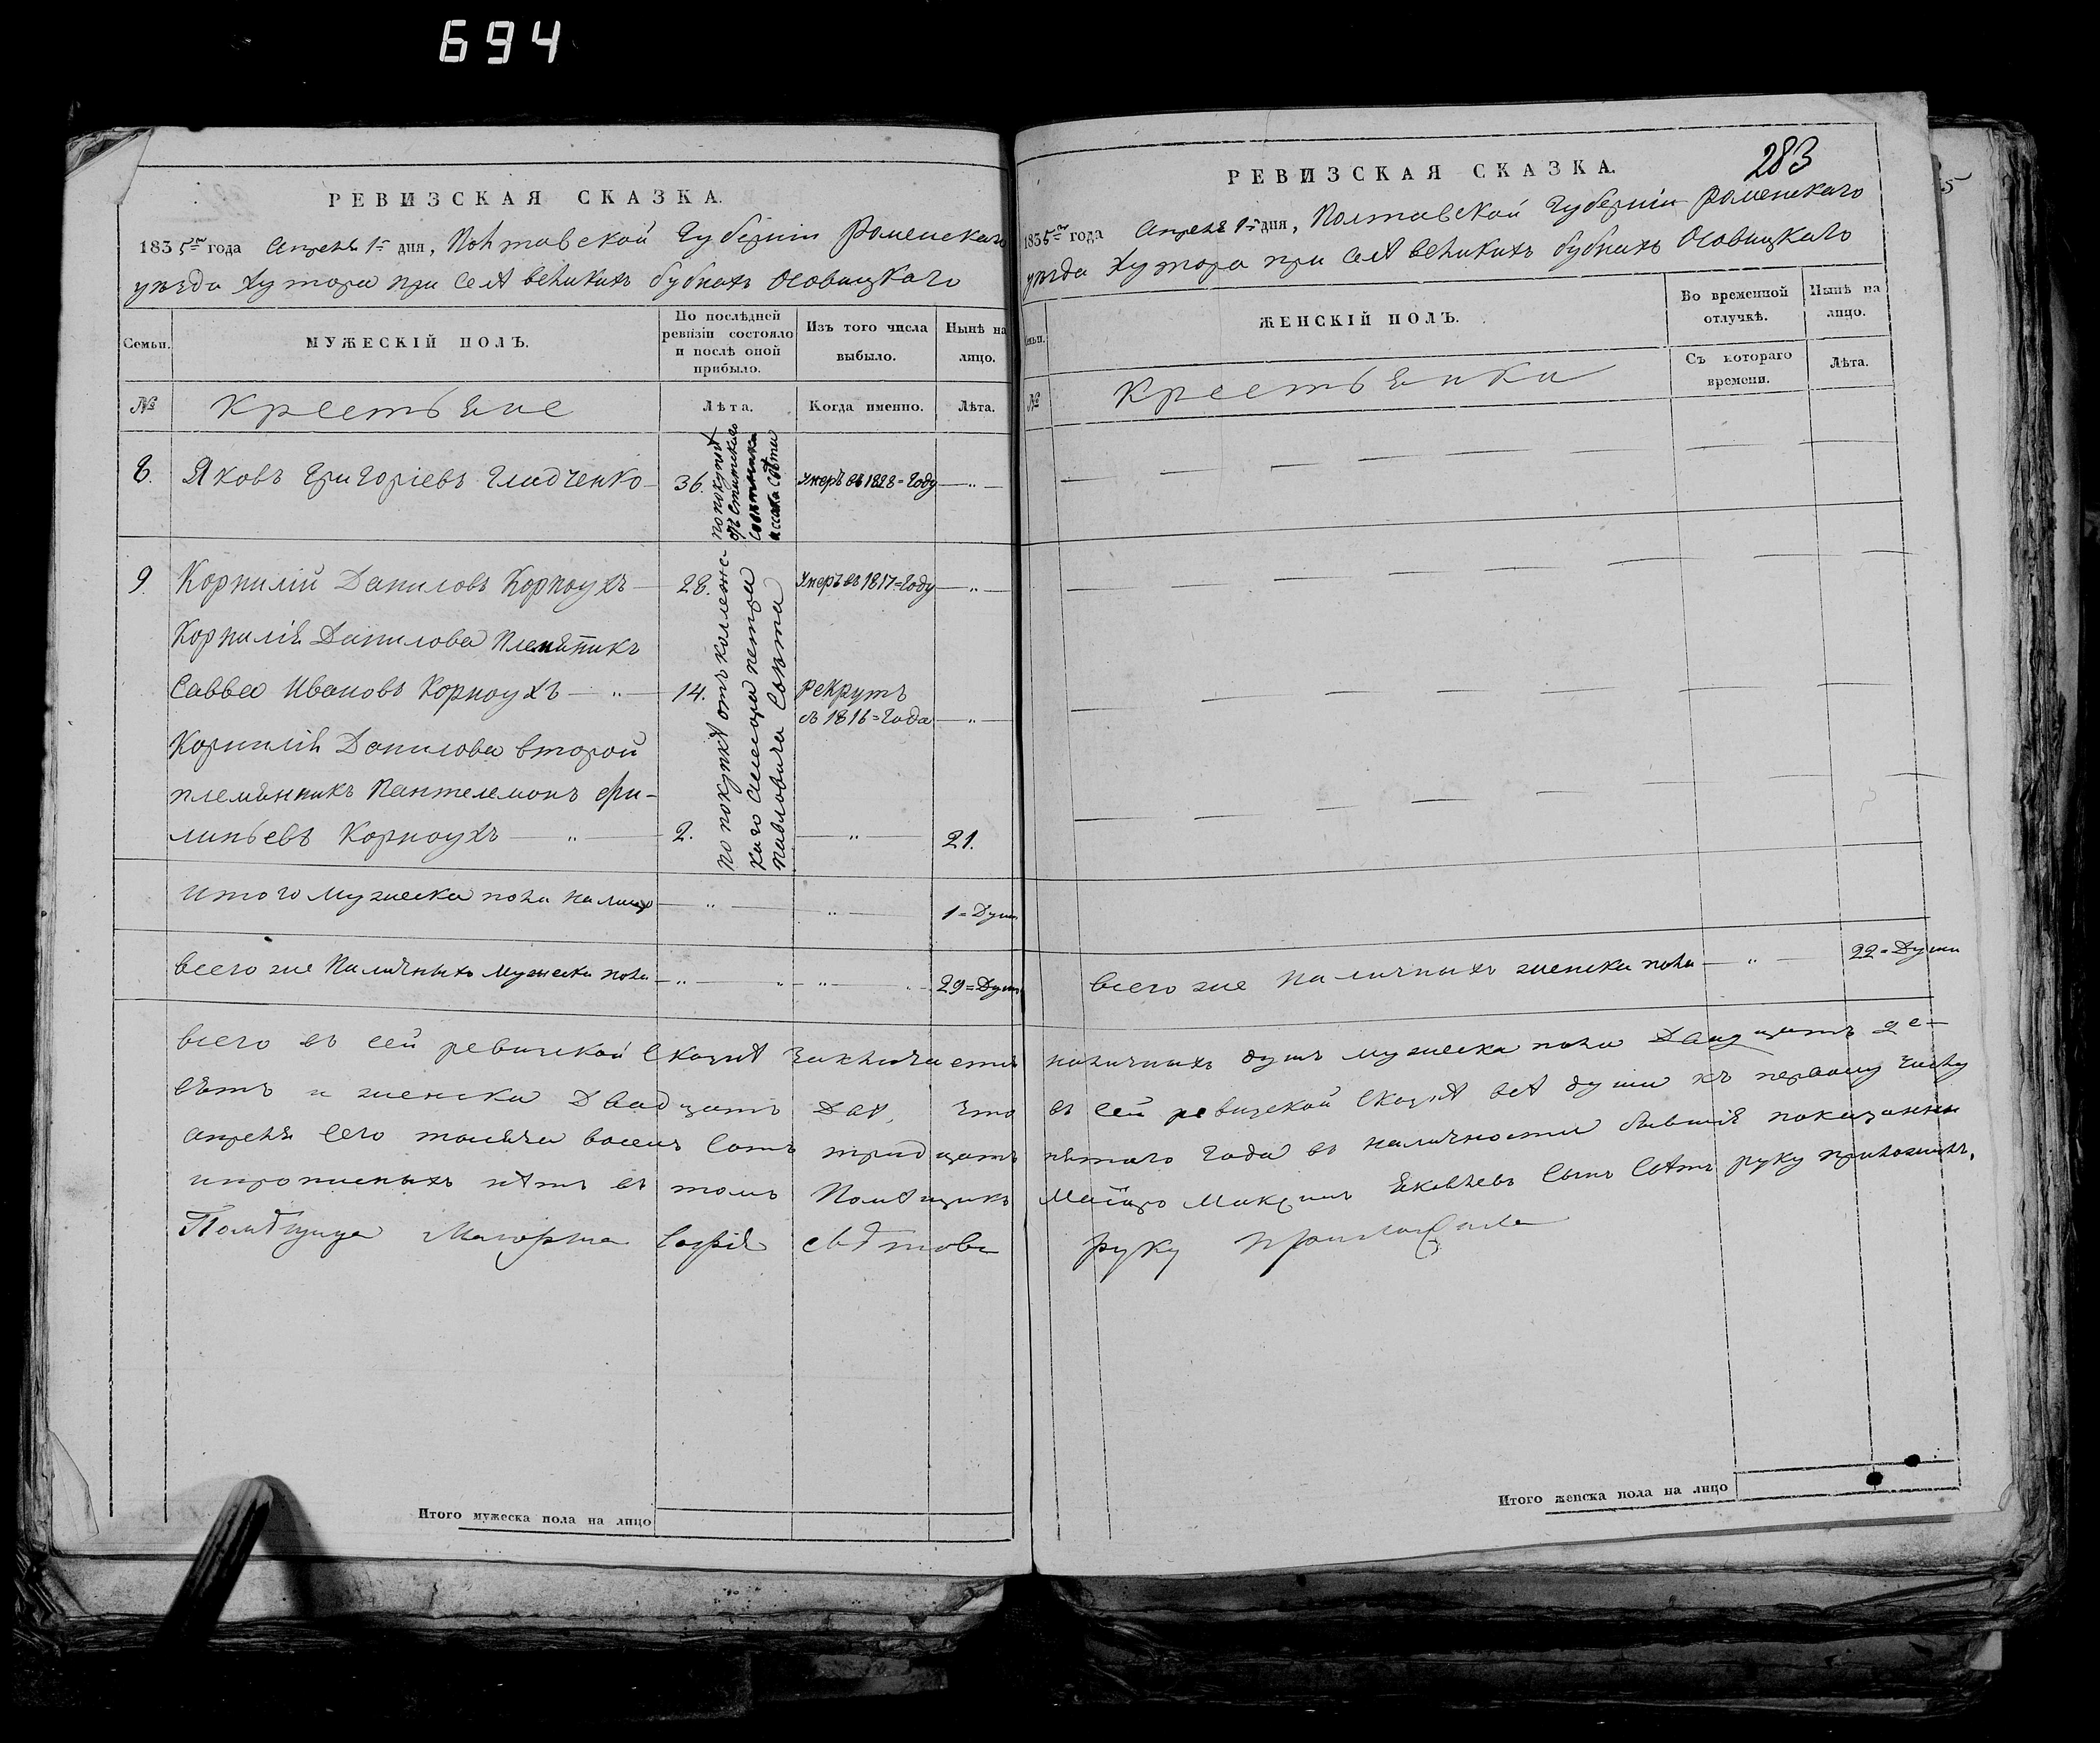 694
РЕВИЗСКАЯ СКАЗКА.
1835го года Апреля 1го дня, Полтавской Губерніи Роменскаго
уезда Хутора при селѣ великихъ бубнахъ Осовицкаго
Семьи.
МУЖЕСКІЙ ПОЛЪ.
По послѣдней ревизіи состояло и послѣ оной прибыло.
Изъ того числа выбыло.
Нынѣ на лицо.
№
Крестьяне
Лѣта.
Когда именно.
Лѣта.
8. Яковъ Григоріевъ Гладченко 36. умеръ въ 1828 = Году — „ —
по покупкѣ
9. Корнилій Даниловъ Корноухъ 28. умеръ въ 1817 = Году — „ —
Корнилія Данилова племяникъ
Савва Ивановъ Корноухъ — „ — 14. рекрутъ
съ 1816 = Года — „ —
Корнилія Данилова второй
племянникъ Пантелемонъ фи-
липьевъ Корноухъ — „ — 2. — „ — 21.
по покупкѣ отъ коллежс
каго секретаря петра
павловича
итого мужеска пола на лицо — „ — „ — 1 = Душа
всего же наличныхъ мужеска пола — „ — „ — „ — 29 = Душъ
283
РЕВИЗСКАЯ СКАЗКА.
1835го года Апреля 1го дня, Полтавской Губерніи Роменскаго
уезда Хутора при селѣ великихъ бубнахъ Осовицкаго
Семьи.
ЖЕНСКІЙ ПОЛЪ.
Во временной отлучкѣ.
Нынѣ на лицо.
№
Крестьянки
Съ котораго времени.
Лѣта.
всего же наличныхъ женска пола — „ — 22 = Души
всего въ сей ревизской сказкѣ заключается наличныхъ душъ мужеска пола Двадцать де-
вять и женска Двадцать Двѣ, что въ сей ревизской сказкѣ всѣ души къ первому числу
апреля сего тысяча восемъ сотъ тридцать пятого года въ наличности бывшія показанны
и прописныхъ нѣтъ въ томъ Помѣщикъ Маіоръ Максимъ Яковлевъ сынъ руку приложилъ.
Помѣщица Маіорша Софія руку приложила
Итого мужеска пола на лицо
Итого женска пола на лицо